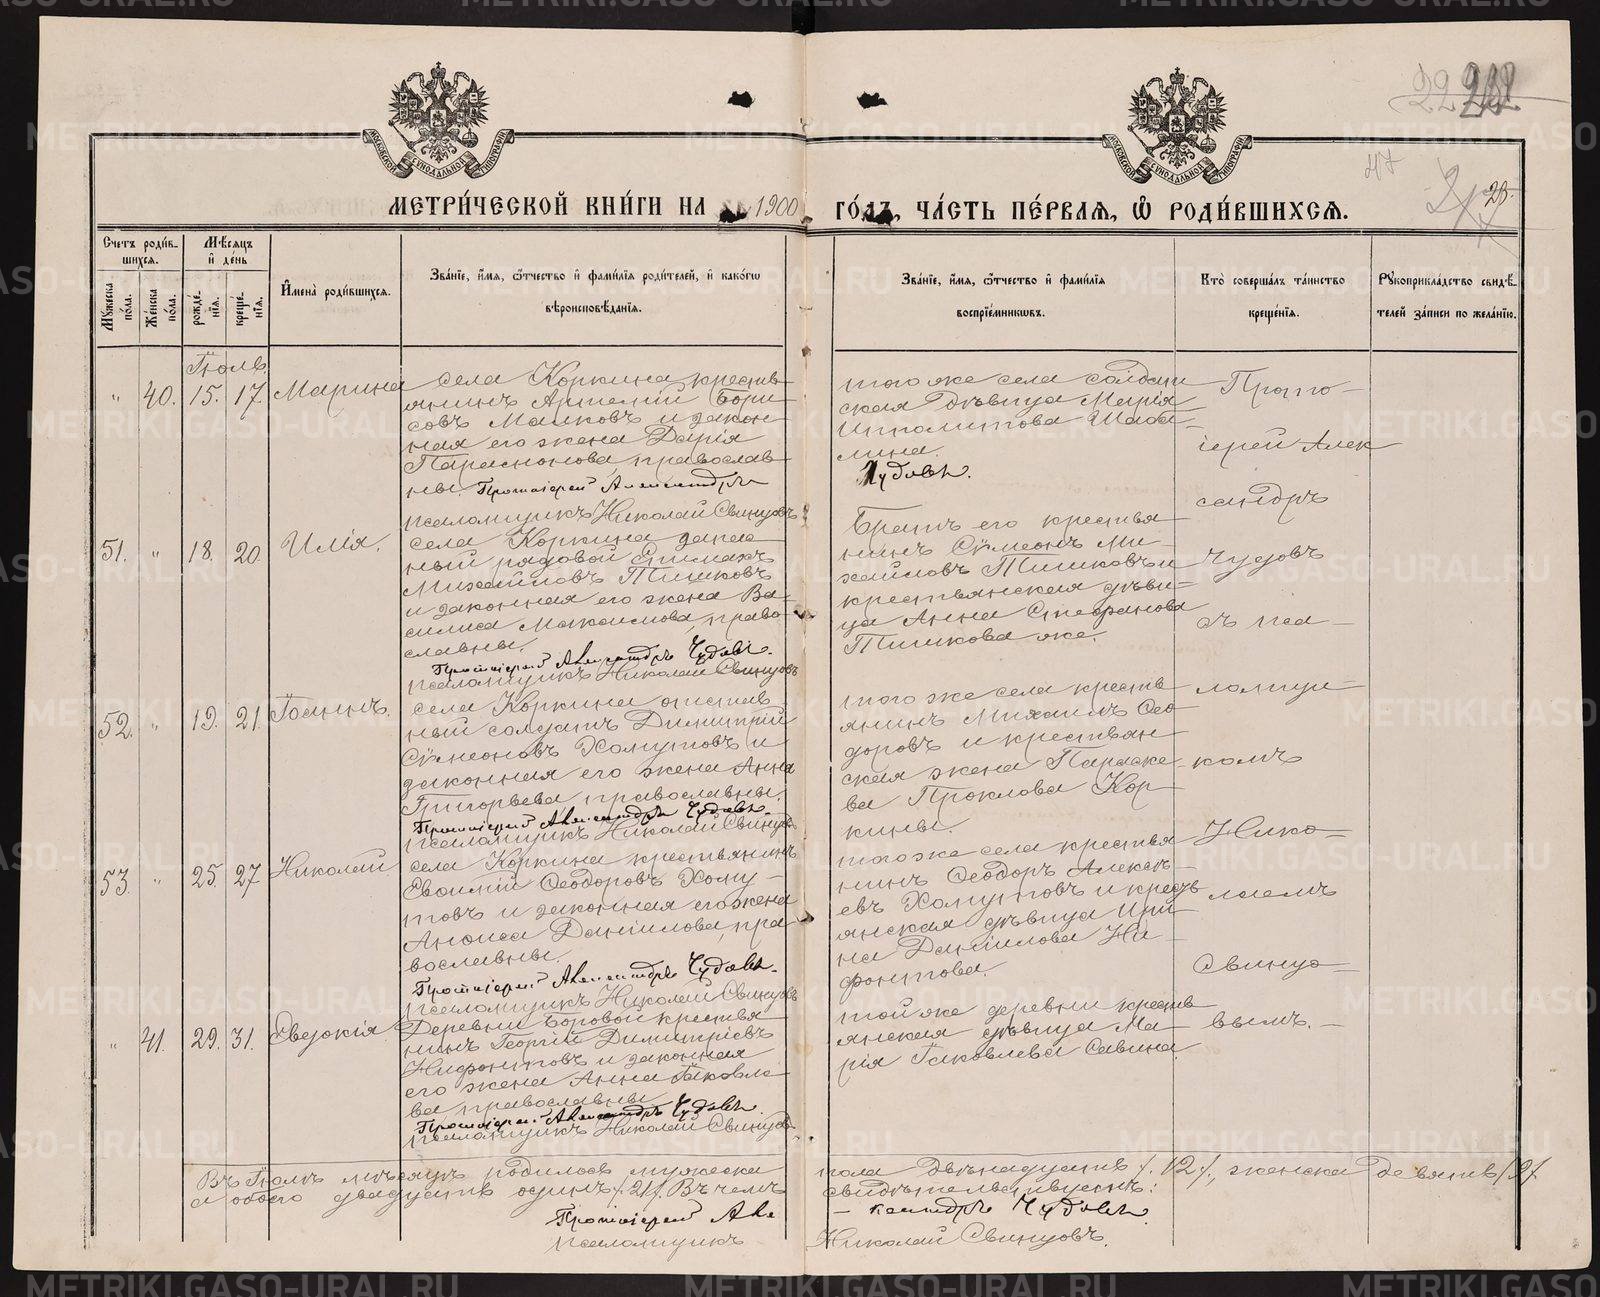 22
47
23.
МОСКОВСКОЙ СѴНОДАЛЬНОЙ ТИПОГРАФІИ
МОСКОВСКОЙ СѴНОДАЛЬНОЙ ТИПОГРАФІИ
МЕТРИ́ЧЕСКОЙ КНИ́ГИ НА 1900 ГО́ДЪ, ЧА́СТЬ ПЕ́РВАѦ, Ѽ РОДИ́ВШИХСѦ.
Счетъ роди́вшихсѧ.
Мꙋ́жеска по́ла.
Же́нска по́ла.
Мѣ́сѧцъ и҆ день
рожде́нїѧ.
креще́нїѧ.
И҆мена̀ роди́вшихсѧ.
Зва́нїе, и҆́мѧ, ѻ҆́тчество и҆ фами́лїѧ роди́телей, и҆ како́гѡ
вѣроисповѣ́данїѧ.
Зва́нїе, и҆́мѧ, ѻ҆́тчество и҆ фами́лїѧ
воспрїе́мникѡвъ.
Кто̀ соверша́лъ та́инство
креще́нїѧ.
Рꙋкоприкла́дство свидѣ́-
телей за́писи по жела́нїю.
Іюль
" 40. 15. 17. Марина
села Коркина кресть-
янинъ Артемій Бори-
совъ Малковъ и закон-
ная его жена Дарія
Парамонова, православ-
ны. Протоіерей Александръ
Чудовъ.
псаломщикъ Николай Свинцовъ
того же села солдат-
ская дѣвица Марія
Ипполитова Шаба-
лина.
51. " 18. 20. Илія.
села Коркина запас-
ный рядовой Епимахъ
Михайловъ Тишковъ
и законная его жена Ва-
силиса Максимова, право-
славны.
Протоіерей Александръ Чудовъ.
псаломщикъ Николай Свинцовъ
Братъ его крестья-
нинъ Сѵмеонъ Ми-
хайловъ Тишковъ и
крестьянская дѣви-
ца Анна Стефанова
Тишкова же.
52. " 19. 21. Іоаннъ.
села Коркина отстав-
ный солдатъ Димитрій
Сѵмеоновъ Хомутовъ и
законная его жена Анна
Григорьева, православны.
Протоіерей Александръ Чудовъ.
псаломщикъ Николай Свинцовъ
того же села кресть-
янинъ Михаилъ Ѳео-
доровъ и крестьян-
ская жена Параске-
ва Проклова Кор-
кины.
53. " 25. 27 Николай
села Коркина крестьянинъ
Ѳеодоровъ Хому-
товъ и законная его жена
Анѳиса Даніилова, пра-
вославны.
Протоіерей Александръ Чудовъ.
псаломщикъ Николай Свинцовъ
того же села крестья-
нинъ Ѳеодоръ Алексѣ-
евъ Хомутовъ и кресть-
янская дѣвица Ири-
на Даніилова Ни-
фонтова.
" 41. 29. 31. Евдокія
Деревни Боровой крестья-
нинъ Георгій Димитріевъ
Нифонтовъ и законная
его жена Анна Іаковле-
ва, православны.
Протоіерей Александръ Чудовъ.
псаломщикъ Николай Свинцовъ
той же деревни кресть-
янская дѣвица Ма-
рія Іаковлева Савина.
Прото-
іерей Алек
сандръ
Чудовъ
съ пса-
ломщи-
комъ
Нико-
лаемъ
Свинцо-
вымъ. -
Въ Іюлѣ мѣсяцѣ родилось мужеска пола двѣнадцать /.12./, женска девять /9/.
а обоего двадцать одинъ /.21/. Въ чемъ свидѣтельствуемъ:
Протоіерей Але-ксандръ Чудовъ.
псаломщикъ Николай Свинцовъ.
METRIKI.GASO-URAL.RU